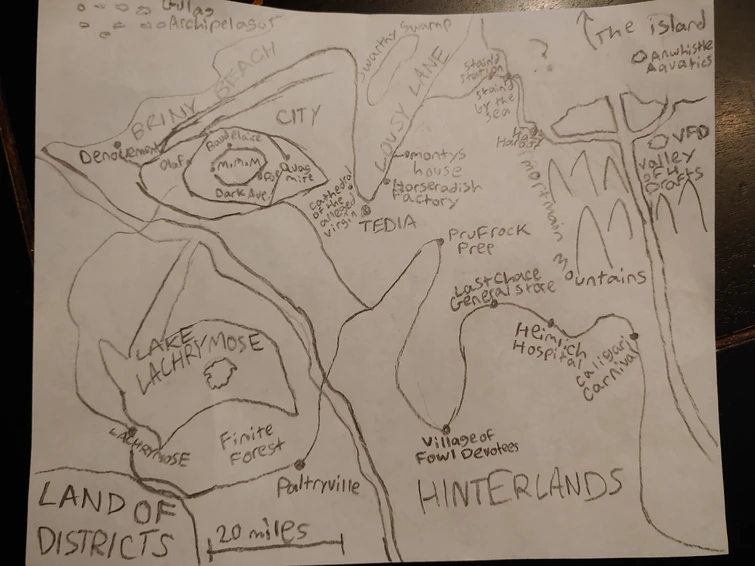 Gulag
Archipelagos
The island
Anwhistle
Aquatics
BRINY BEACH
Swarthy Swamp
LOUSY LANE
?
Staind
Station
Staind
by the
Sea
CITY
Denouement
Baudelaire
Olaf
M.M.M
Quag
mire
Dark Ave.
VFD
Valley
of 4
Drafts
Montys
house
Horseradish
Factory
cathedral
of the
alleged
virgin
TEDIA
mortmain mountains
Prufrock
Prep
Last Chace
General store
Heimlich
Hospital
Caligari
Carnival
LAKE
LACHRYMOSE
LACHRYMOSE
Finite
Forest
Paltryville
Village of
Fowl Devotees
HINTERLANDS
LAND OF
DISTRICTS
20 miles